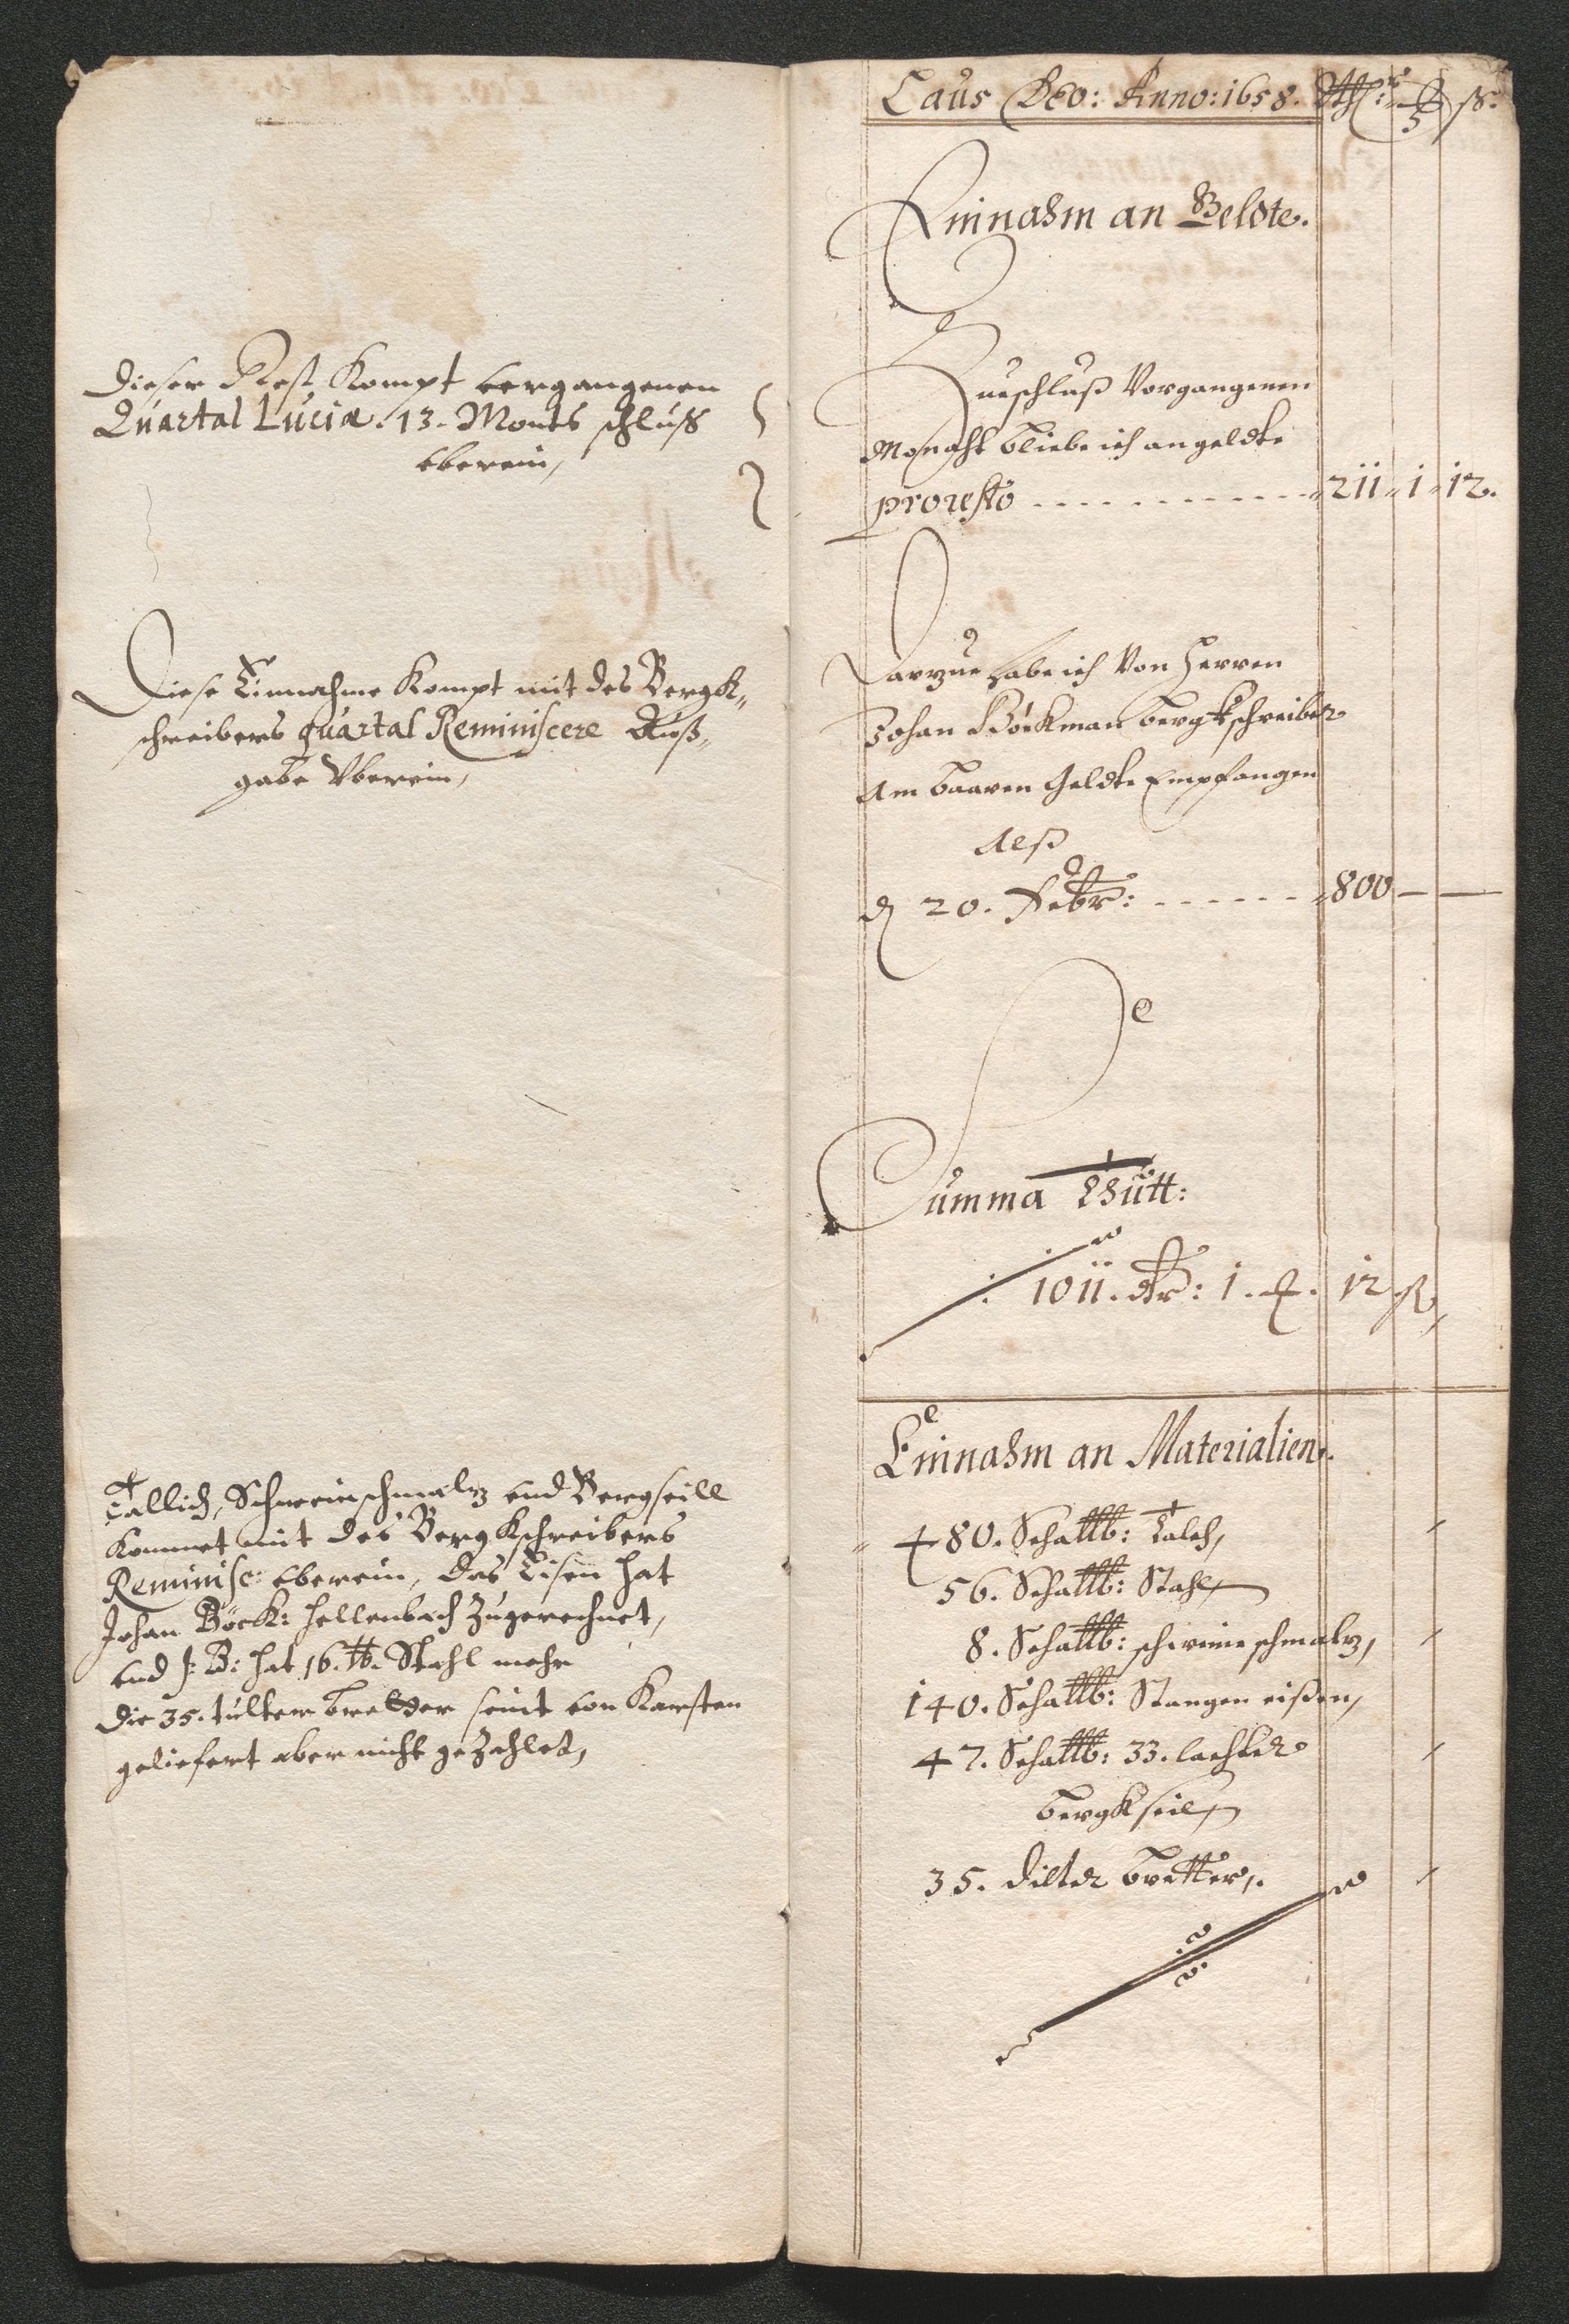 Dieser Rest Kompt vergangenen
Quartal Luciæ. 13. Monts schluß
vberein,
Diese Einnahme Kompt mit des Bergk„
schreibers quartal Reminiscere Auß„
gabe Vberein,
Tallich, Schweinschmalz vnd Bergseill
Kommet mit des BergKschreibers
Reminisc: vberein, das Eisen hat
Johan Böck: Hellenbach Zugerechnet,
vnd J: B: hat 16. ℔. Stahl mehr
die 35. tulter bretter seint von Karsten
geliefert aber nicht geZahlet,
Laus Deo: Anno: 1658. Rth: ß.
Einnahm an Geldte.
Zueschluß Vorgangenen
Monaht bliebe ich an geldte
pro resto - - - - - - - - - - 211 „ 1 „ 12.
Darzue habe ich Von Herren
Johan Böckman bergkschreiber
Am baaren Geldte Empfangen
Alß
d 20. Febr: - - - - - - 800 — —
Summa Thutt:
1011. dr: 1. 12 ß,
Einnahm an Materialien.
480. Schallb: Talch,
56. Schallb: Stahl,
8. Schallb: schweine schmaltz,
140. Schallb: Stangen eißen,
47. Schallb: 33. lachter
bergkseil,
35. dilter bretter,.